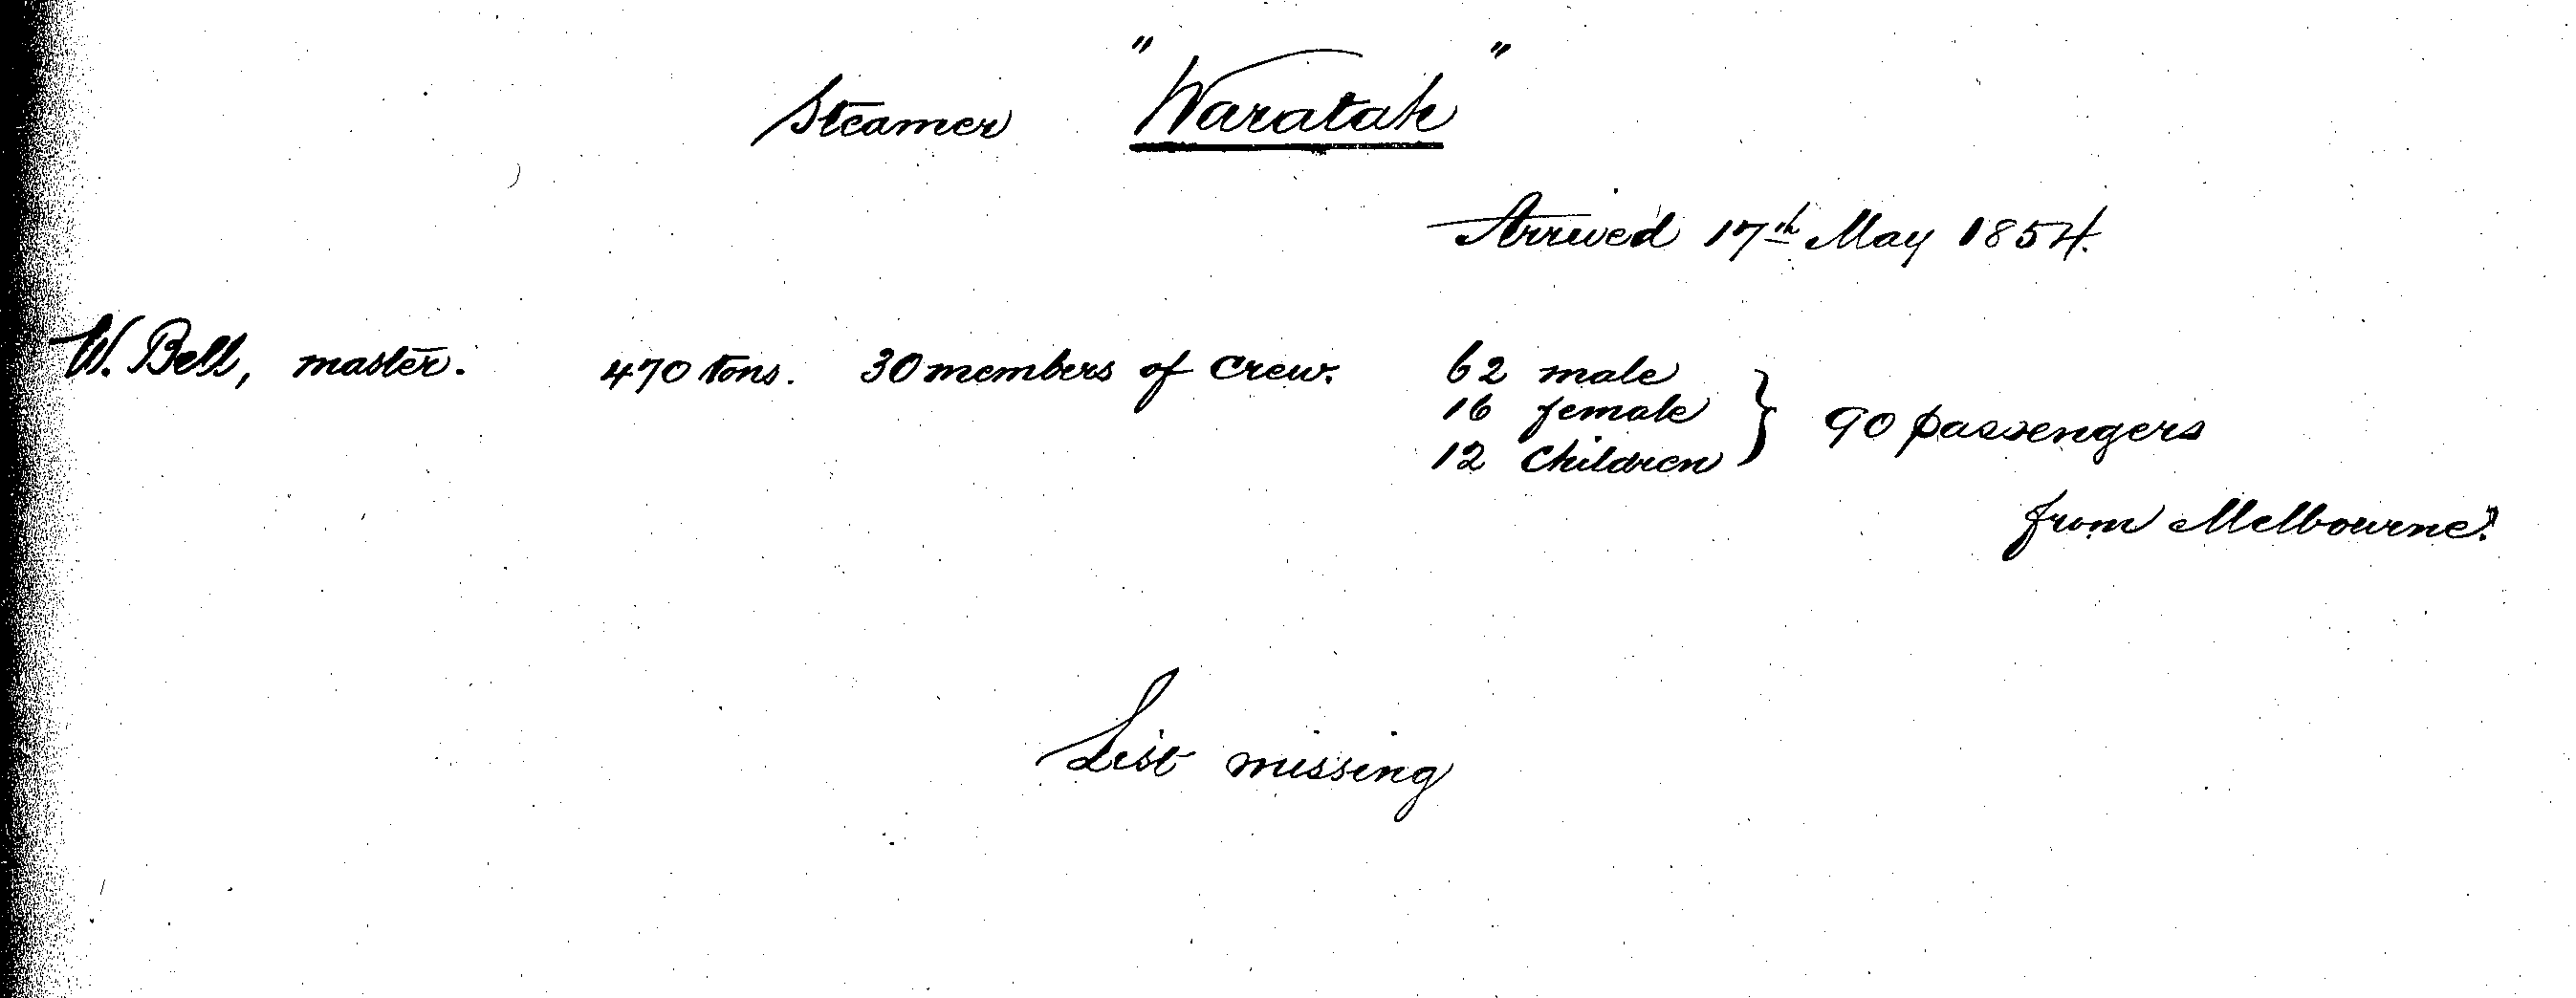 Steamer "Waratah"
Arrived 17th May 1854.
W. Bell, master. 470 tons. 30 members of crew. 62 male
16 female } 90 passengers
12 children
from Melbourne.
List missing